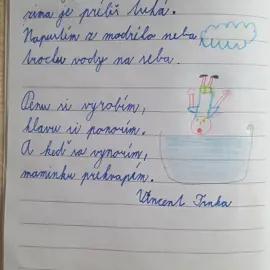 zima je príliš tuhá.
Napustím z modrého neba
trochu vody na seba.
Penu si vyrobím,
hlavu si ponorím.
A keď sa vynorím,
maminku prekvapím.
Vincent Trnka